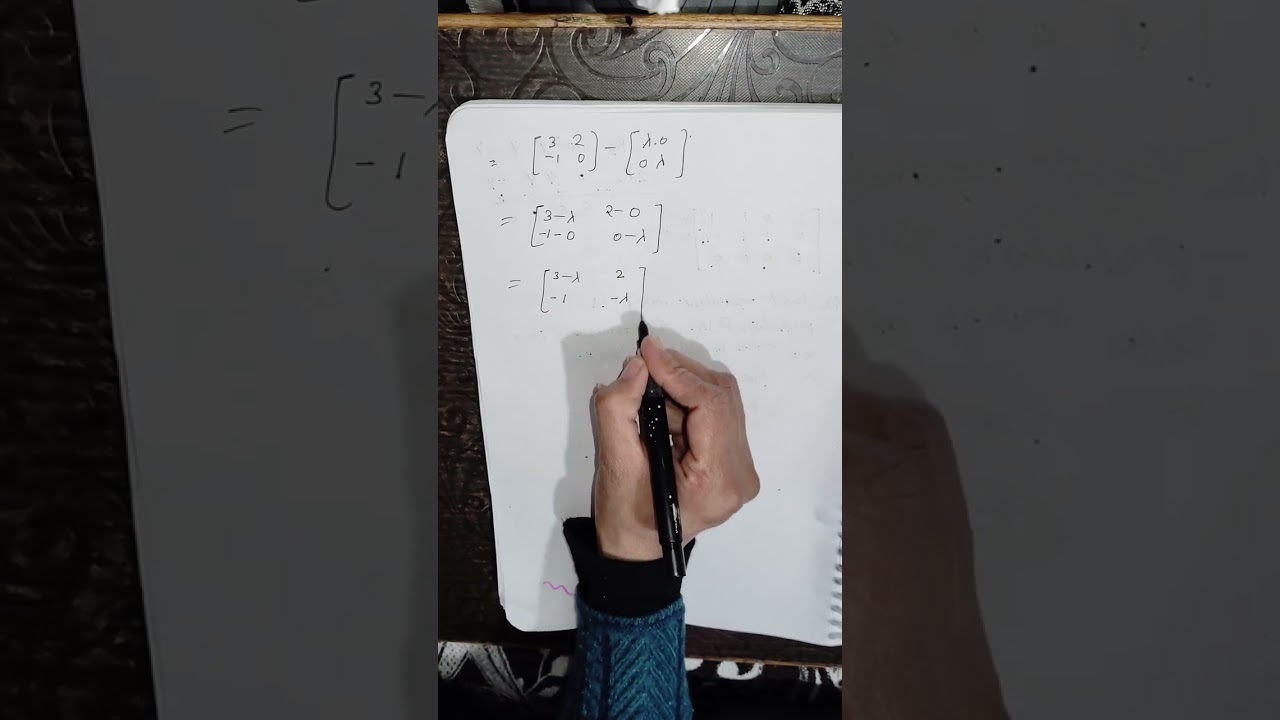 = [3 2
-1 0] - [λ 0
0 λ]
= [3-λ 2-0
-1-0 0-λ]
= [3-λ 2
-1 -λ]